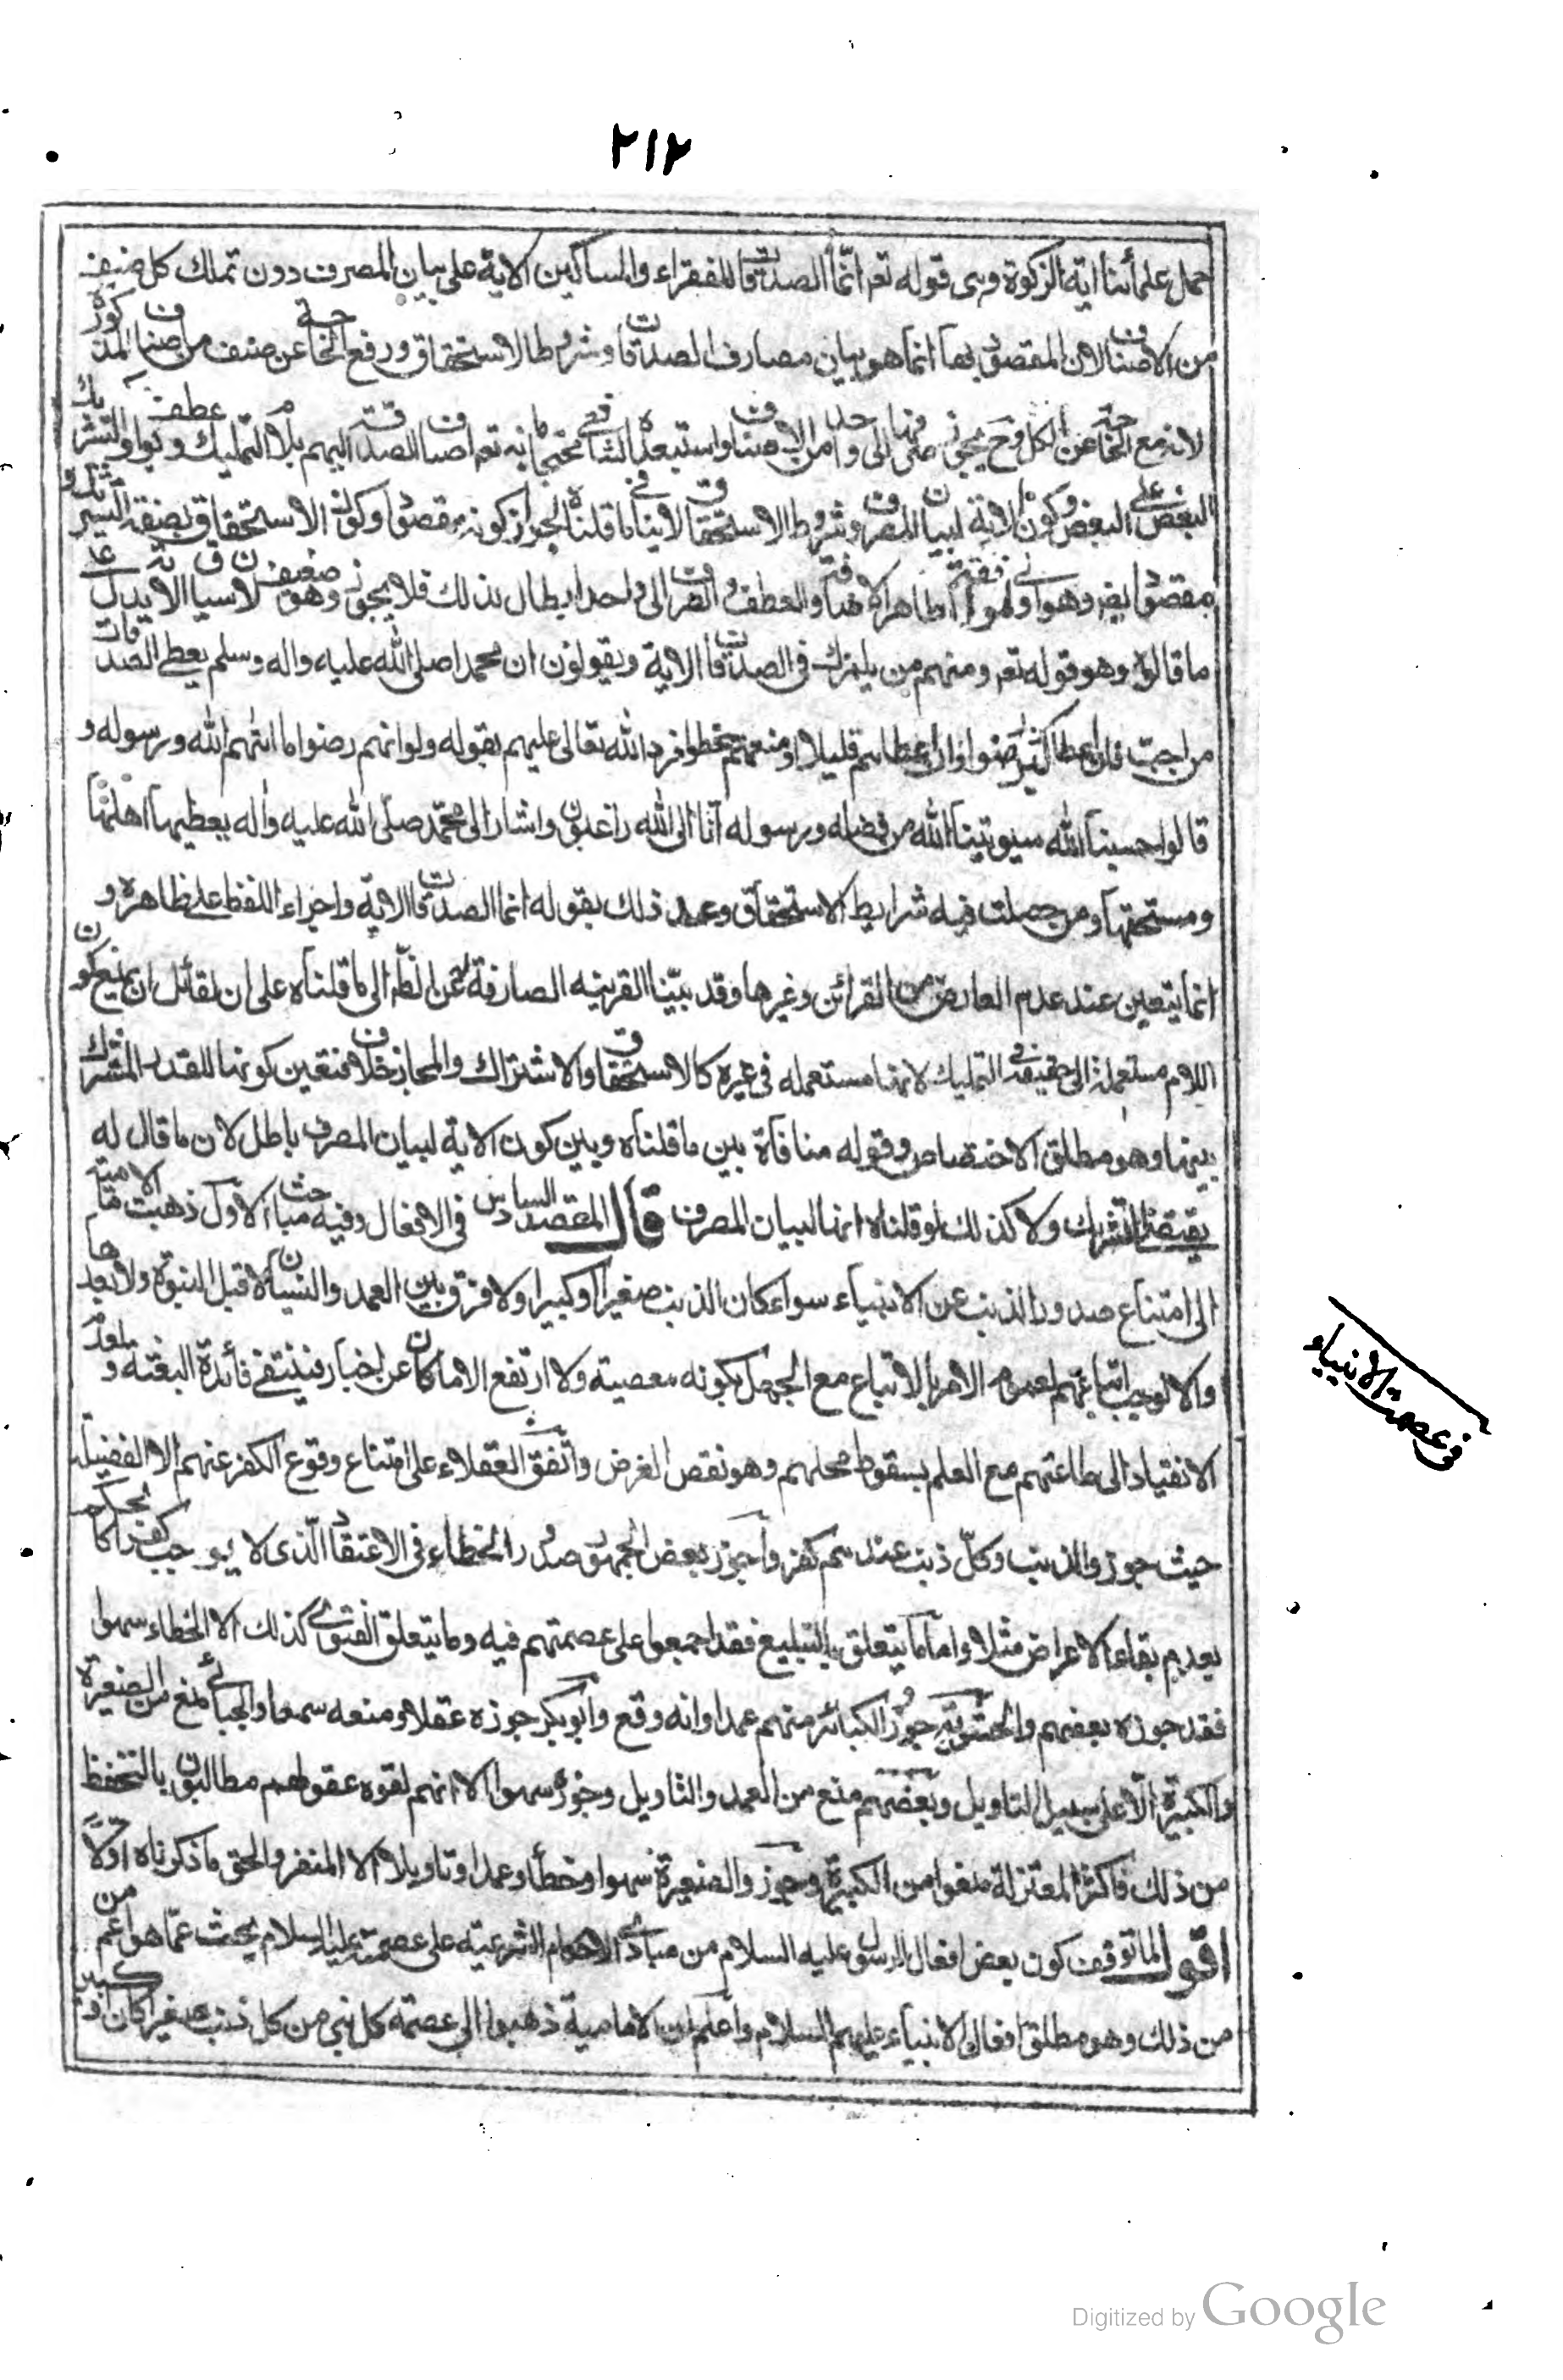 ٢١٢
حمل علمأئنا اية الزكوة وهى قوله تعه انّما الصدقات للفقراء والمساكين الاية على بيان المصرف دون تملك كل صنف
من الاصناف لان المقصود بها انما هو بيان مصارف الصدقات وشروط الاستحقاق ورفع الحاجة عن صنف من اصناف المذكورة
لانه مع الحاجة عن الكل وح يجوز صرفها الى واحد من الاصناف واستبعده الشافعى محتجا بانه تعه اضاف الصدقة اليهم بلام التمليك وبواو عطف التشريك
البعض على البعض وكون الاية لبيان المصرف وشروط الاستحقاق لاينافى ما قلناه لجواز كونه مقصودا وكون الاستحقاق بصفة التشريك
مقصودا ايضه وهو اولى لموافقته ظاهر الاضافة والعطف والصرف الى واحد ابطال لذلك فلا يجوز وهو ضعيف لان سياق الاية يدل على
ما قالوه وهو قوله تعه ومنهم من يلمزك فى الصدقات الاية ويقولون ان محمدا صلى الله عليه واله وسلم يعطى الصدقات
من احب فان اعطاهم كثيرا رضوا وان اعطاهم قليلا او منعهم سخطوا فرد الله تعالى عليهم بقوله ولو انهم رضوا ما اتهم الله ورسوله و
قالوا حسبنا الله سيوتينا الله من فضله ورسوله انا الى الله راغبون واشار الى محمد صلّى الله عليه واله يعطيها اهلها
ومستحقها ومن حصلت فيه شرايط الاستحقاق وعمد ذلك بقوله انما الصدقات الايّة واجراء اللفظ على ظاهره و
انما يتعين عند عدم العارض من القرائن وغيرها وقد بيّنا القرينه الصارفة عن الظه الى ما قلناه على ان لقائل ان يمنع كون
اللام مستعملة الى حقيقة فى التمليك لانها مستعمله فى غيره كالاستحقاق والاشتراك والمجاز خلاف فتعين كونها للقدر المشترك
بينها وهو مطلق الاختصاص وقوله منافاة بين ما قلناه وبين كون الاية لبيان المصرف باطل لان ما قال له
يقتضى التشريك ولا كذلك لو قلناه انها لبيان المصرف قال المقصد السادس فى الافعال وفيه مباحث الاول ذهبت الامامية
الى امتناع صدور الذنب عن الانبياء سواء كان الذنب صغيرا او كبيرا ولا فرق بين العمد والنسيان لا قبل النبوة ولا بعدها
والا لوجب اتباعهم لعموم الامر بالاتباع مع الجهل بكونه معصيته ولا ارتفع الامان عن اخباره فينتفى فائدة البعثه و
الانقياد الى طاعتهم مع العلم بسقوط محلهم وهو نقص الغرض واتّفق العقلاء على امتناع وقوع الكفر عنهم الا الفضيلية
حيث جوزوا الذنب وكلّ ذنب عندهم كفر واجوز بعض الجمهور صدور الخطاء فى الاعتقاد الّذى لا يوجب كفرا كالحكم
بعدم بقاء الاعراض مثلا واما ما يتعلق بالتبليغ فقد اجمعوا على عصمتهم فيه وما يتعلق الفتوى كذلك الا الخطاء سهوا
فقد جوزه بعضهم والحشويّة جوزوا الكبائر منهم عمدا وانه وقع وابوبكر جوزه عقلا ومنعه سمعا والجبائى منع من الصغيرة
والكبيرة الّا على سبيل التاويل وبعضهم منع من العمد والتاويل وجوزه سهوا الا انهم لقوه عقولهم مطالبون بالتحفظ
من ذلك فاكثر المعتزلة منعوا من الكبيرة وجوزوا الصغيرة سهوا وخطأ وعمدا وتاويلا الا المنفر والحق ما ذكرناه اولاً
اقول لما توقف كون بعض افعال الرسول عليه السلام من مبادى الاحكام الشرعية على عصمته عليه السلام بحث عمّا هو اعم من
من ذلك وهو مطلق افعال الانبياء عليهم السلام واعلم ان الامامية ذهبوا الى عصمة كل نبى من كل ذنب صغيرا كان او كبير
فى عصمة الانبياء
Digitized by Google